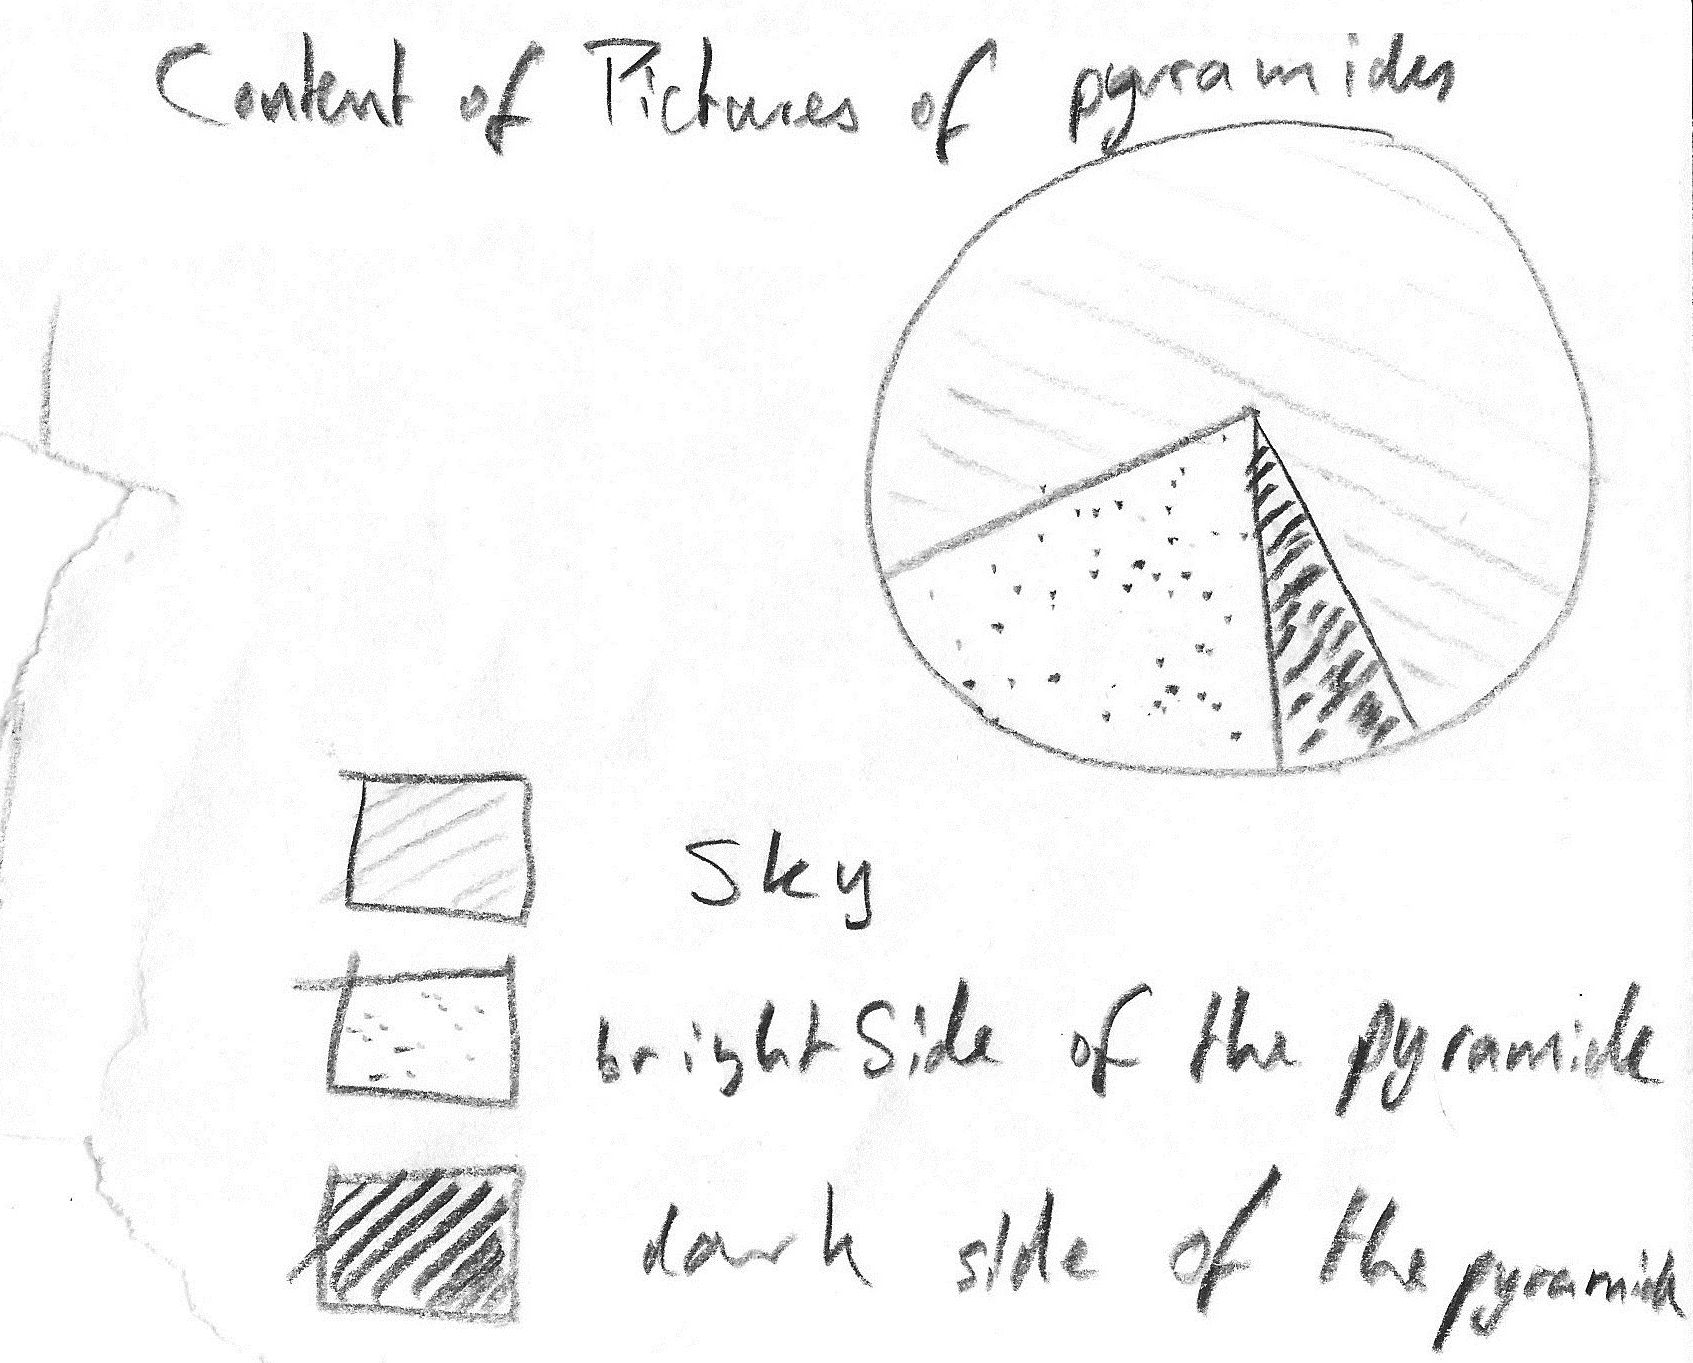 Content of Pictures of pyramides
Sky
bright Side of the pyramide
dark side of the pyramide